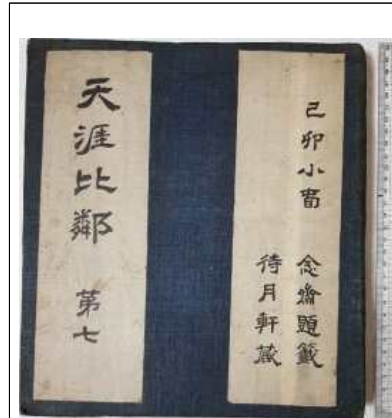 己卯小旾 念齋題籤
待月軒藏
天涯比鄰 第七